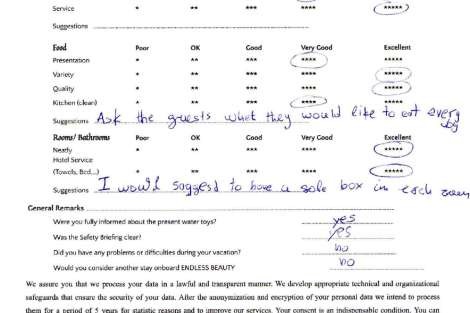 Service * ** *** **** *****
Suggestions
Food Poor OK Good Very Good Excellent
Presentation * ** *** **** *****
Variety * ** *** **** *****
Quality * ** *** **** *****
Kitchen (clean) * ** *** **** *****
Suggestions Ask the guests whet they would like to eat every day
Rooms/ Bathrooms Poor OK Good Very Good Excellent
Neatly * ** *** **** *****
Hotel Service
(Towels, Bed....) * ** *** **** *****
Suggestions I would soggesd to have a sole box in each room
General Remarks
Were you fully informed about the present water toys? yes
Was the Safety Briefing clear? yes
Did you have any problems or difficulties during your vacation? no
Would you consider another stay onboard ENDLESS BEAUTY no
We assure you that we process your data in a lawful and transparent manner. We develop appropriate technical and organizational
safeguards that ensure the security of your data. After the anonymization and encryption of your personal data we intend to process
them for a period of 5 years for statistic reasons and to improve our services. Your consent is an indispensable condition. You can